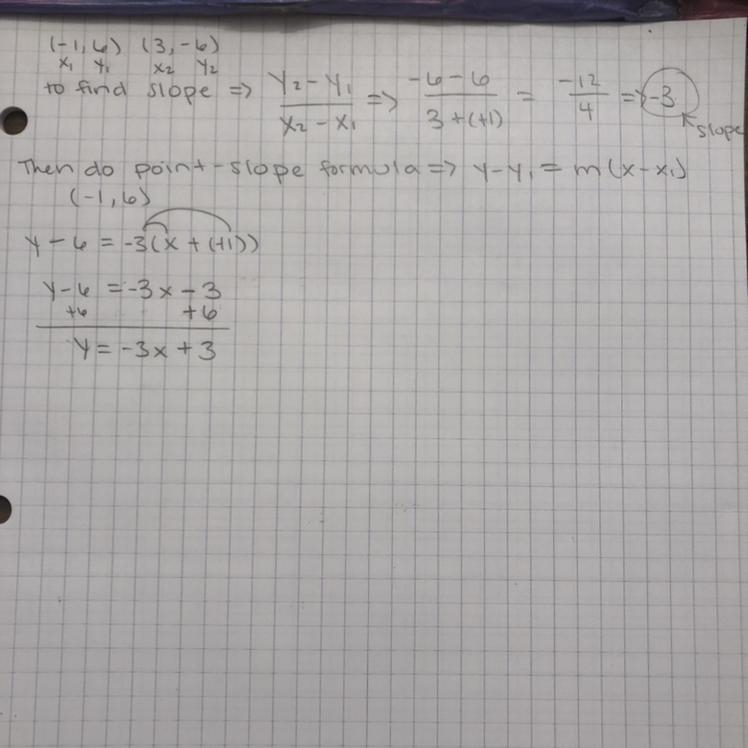 (-1,6) (3,-6)
x₁ y₁ x₂ y₂
to find slope => y₂-y₁ / x₂-x₁ => -6-6 / 3+(+1) = -12 / 4 => -3
slope
Then do point-slope formula => y-y₁ = m(x-x₁)
(-1,6)
y-6 = -3(x+(+1))
y-6 = -3x-3
+6 +6
y = -3x+3